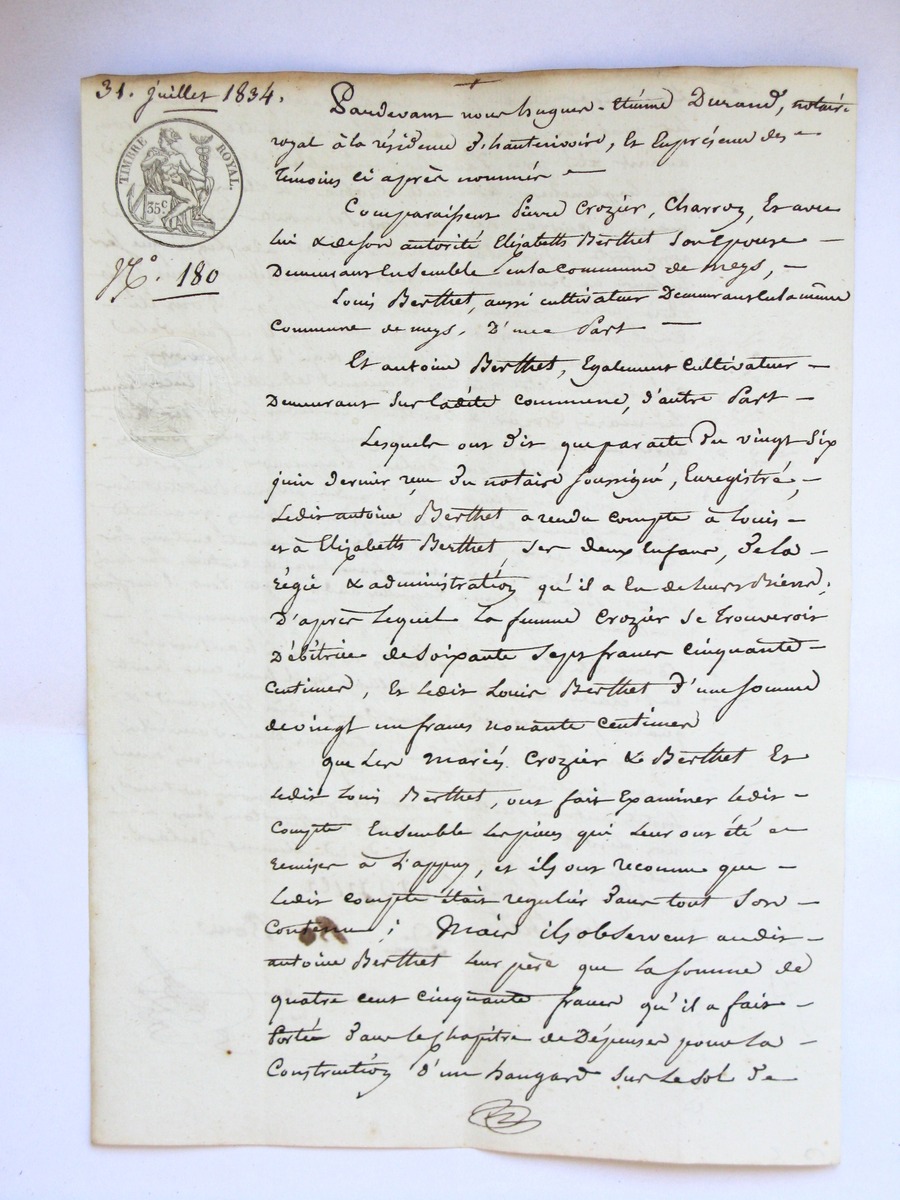 31. juillet 1834.
TIMBRE ROYAL.
35 c.
N.° 180
Pardevant nous hugues-etienne Durand, notaire
royal à la résidence d'hauterivoire, et en présence des
témoins ci après nommés
Comparaissent Pierre Crozier, Charron, et avec
lui & de son autorité Elizabeth Berthet son épouse
Demeurans Ensemble en la commune de meys,
Louis Berthet, aussi cultivateur Demeurans en la même
Commune de meys, D'une Part
Et antoine Berthet, Egalement cultivateur
Demeurant sur ladite commune, d'autre Part
Lesquels ont dit que par acte Du vingt Six
juin dernier reçu du notaire soussigné, Enregistré,
Ledit antoine Berthet a rendu compte à Louis
et à Elizabeth Berthet, ses deux enfans, de la
régie & administration qu'il a eu de leurs Biens,
D'après lequel La femme Crozier se trouverois
Débitrice de soixante sept francs cinquante
Centimes, Et Ledit Louis Berthet d'une somme
de vingt un francs nonante centimes
que Les mariés Crozier & Berthet Et
Ledit Louis Berthet, ont fait Examiner Ledit
Compte Ensemble Les pièces qui Leur ont été
remises à L'appuy, et ils ont reconnu que
Ledit compte était regulier dans tout Son
Contenu ; Mais ils observent audit
antoine Berthet leur père que La somme de
quatre cent cinquante francs qu'il a fait
Portée dans le chapitre de Dépenses pour La
Construction d'un hangard sur Le sol de